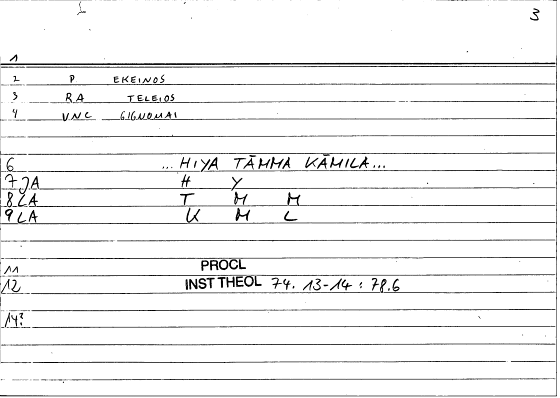 3
1
2 P EKEINOS
3 RA TELEIOS
4 VNC GIGNOMAI
6 ... HIYA TĀMMA KĀMILA...
7 JA H Y
8 LA T M M
9 LA K M L
11 PROCL
12 INST THEOL 74. 13-14 : 78.6
14?